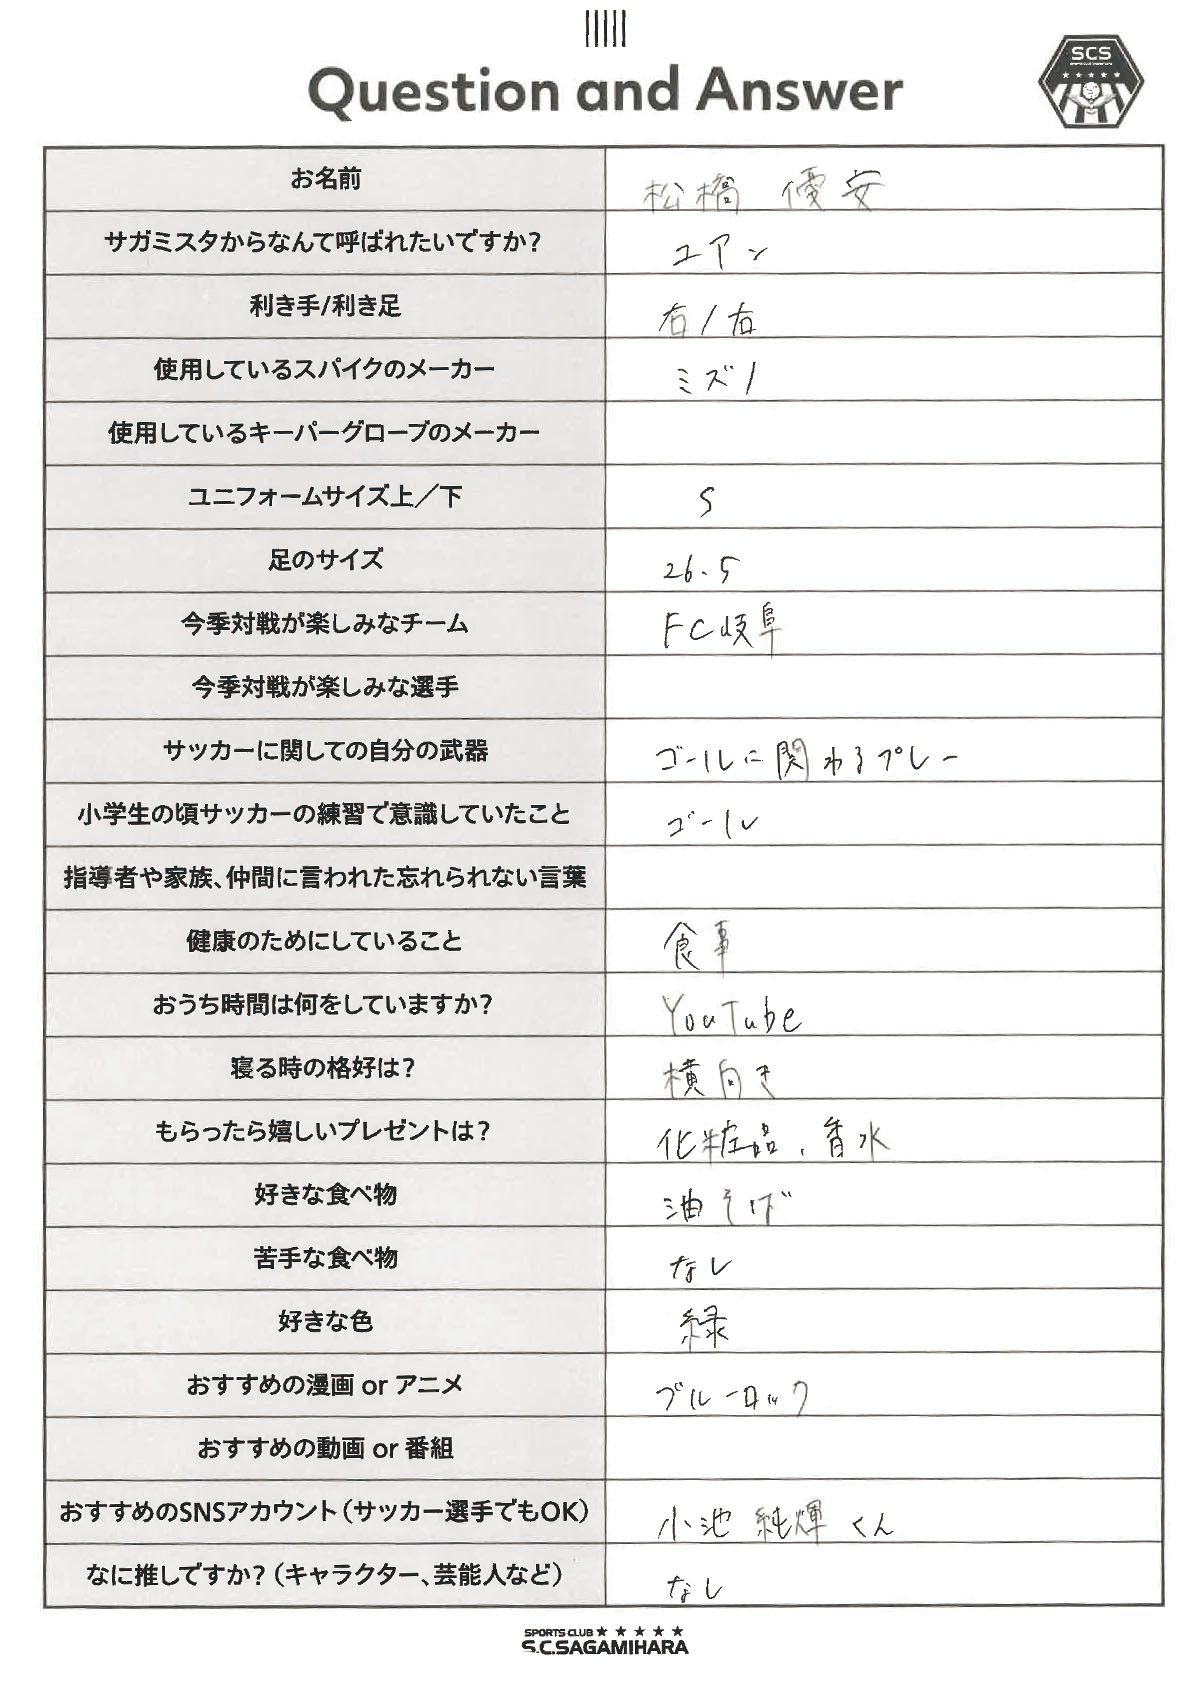 Question and Answer
SCS
お名前
松橋 優安
サガミスタからなんて呼ばれたいですか?
ユアン
利き手/利き足
右/右
使用しているスパイクのメーカー
ミズノ
使用しているキーパーグローブのメーカー
ユニフォームサイズ上/下
S
足のサイズ
26.5
今季対戦が楽しみなチーム
FC岐阜
今季対戦が楽しみな選手
サッカーに関しての自分の武器
ゴールに関わるプレー
小学生の頃サッカーの練習で意識していたこと
ゴール
指導者や家族、仲間に言われた忘れられない言葉
健康のためにしていること
食事
おうち時間は何をしていますか?
YouTube
寝る時の格好は?
横向き
もらったら嬉しいプレゼントは?
化粧品、香水
好きな食べ物
油そば
苦手な食べ物
なし
好きな色
緑
おすすめの漫画 or アニメ
ブルーロック
おすすめの動画 or 番組
おすすめのSNSアカウント(サッカー選手でもOK)
小池 純輝くん
なに推しですか?(キャラクター、芸能人など)
なし
SPORTS CLUB ★ ★ ★ ★ ★
S.C.SAGAMIHARA